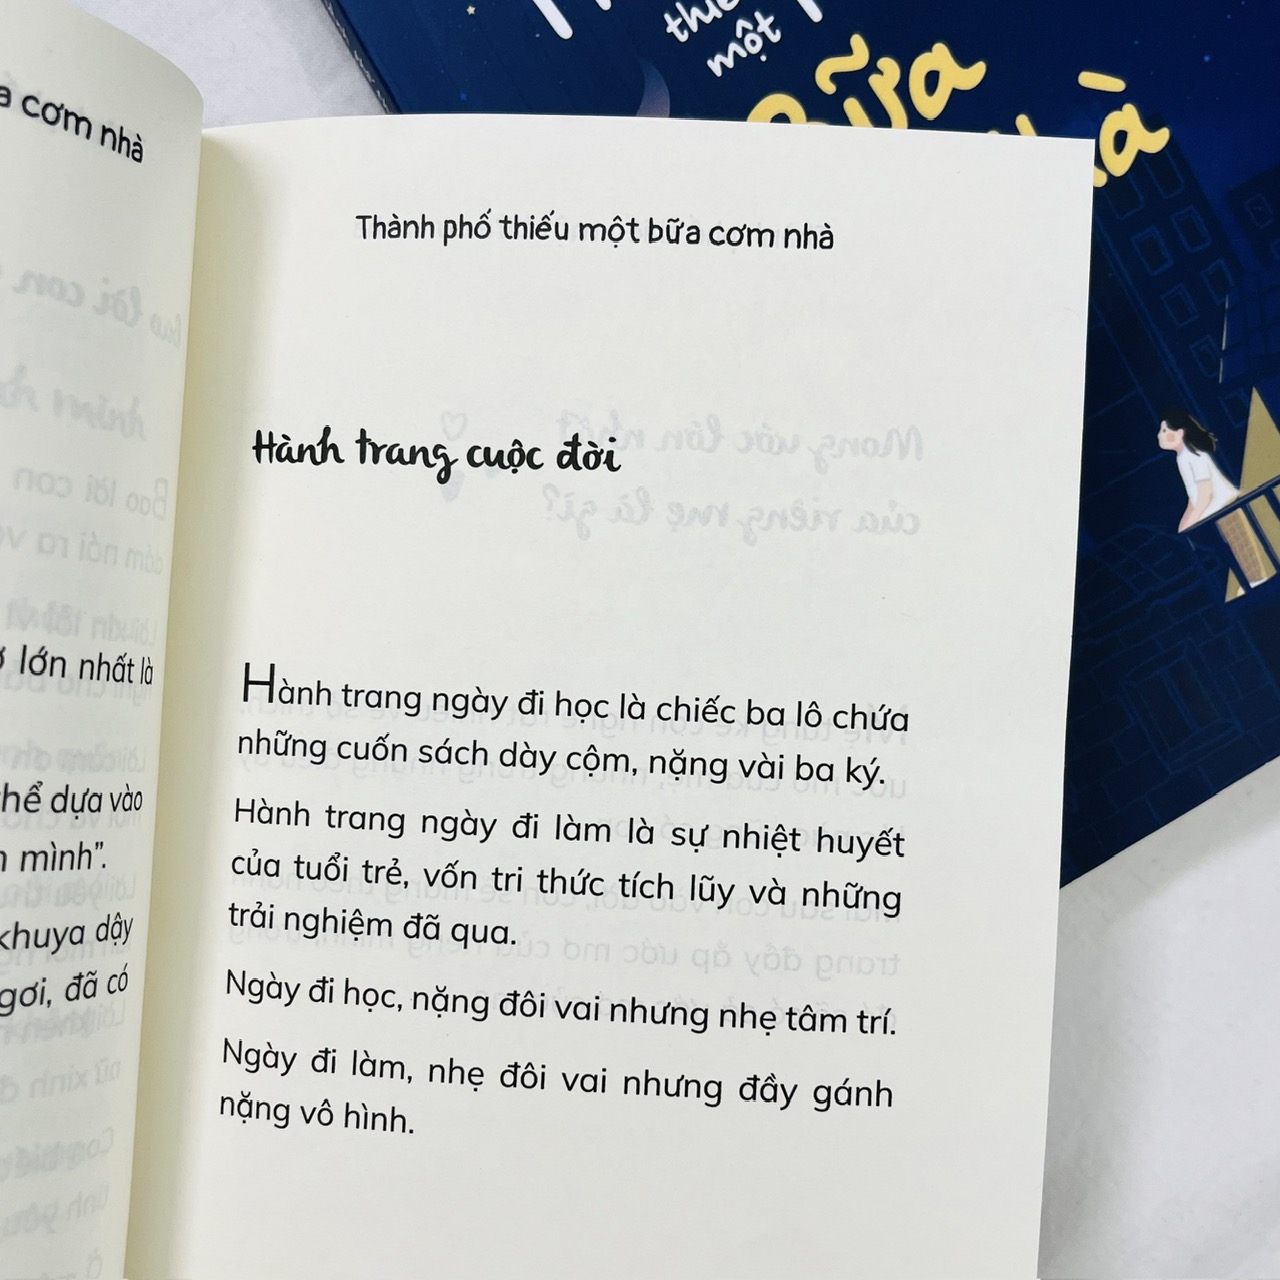 cơm nhà
lớn nhất là
dựa vào
mình”.
khuya dậy
đã có
thiếu
một
Bữa
Thành phố thiếu một bữa cơm nhà
Hành trang cuộc đời
Hành trang ngày đi học là chiếc ba lô chứa
những cuốn sách dày cộm, nặng vài ba ký.
Hành trang ngày đi làm là sự nhiệt huyết
của tuổi trẻ, vốn tri thức tích lũy và những
trải nghiệm đã qua.
Ngày đi học, nặng đôi vai nhưng nhẹ tâm trí.
Ngày đi làm, nhẹ đôi vai nhưng đầy gánh
nặng vô hình.